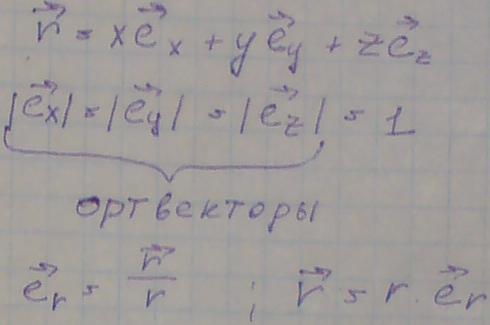 r⃗ = xe⃗ₓ + ye⃗_y + ze⃗_z
|e⃗ₓ| = |e⃗_y| = |e⃗_z| = 1
ортвекторы
e⃗_r = r⃗/r ; r⃗ = r · e⃗_r